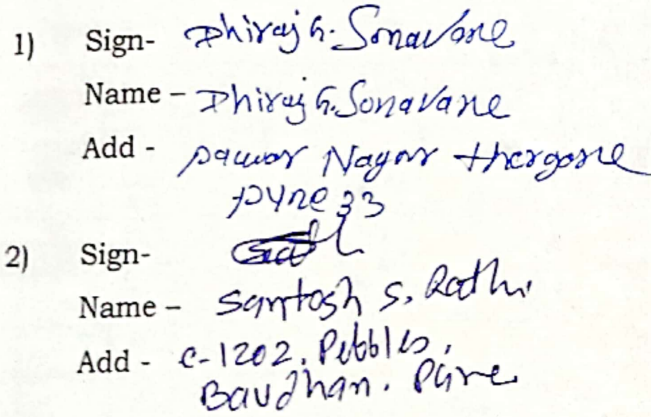 1) Sign- Dhiraj G. Sonavane
Name – Dhiraj G. Sonavane
Add - pawar Nagar thergone
pyne 33
2) Sign-
Name – Santosh S. Rathi
Add - C-1202, Pebbles,
Bavdhan. Pune